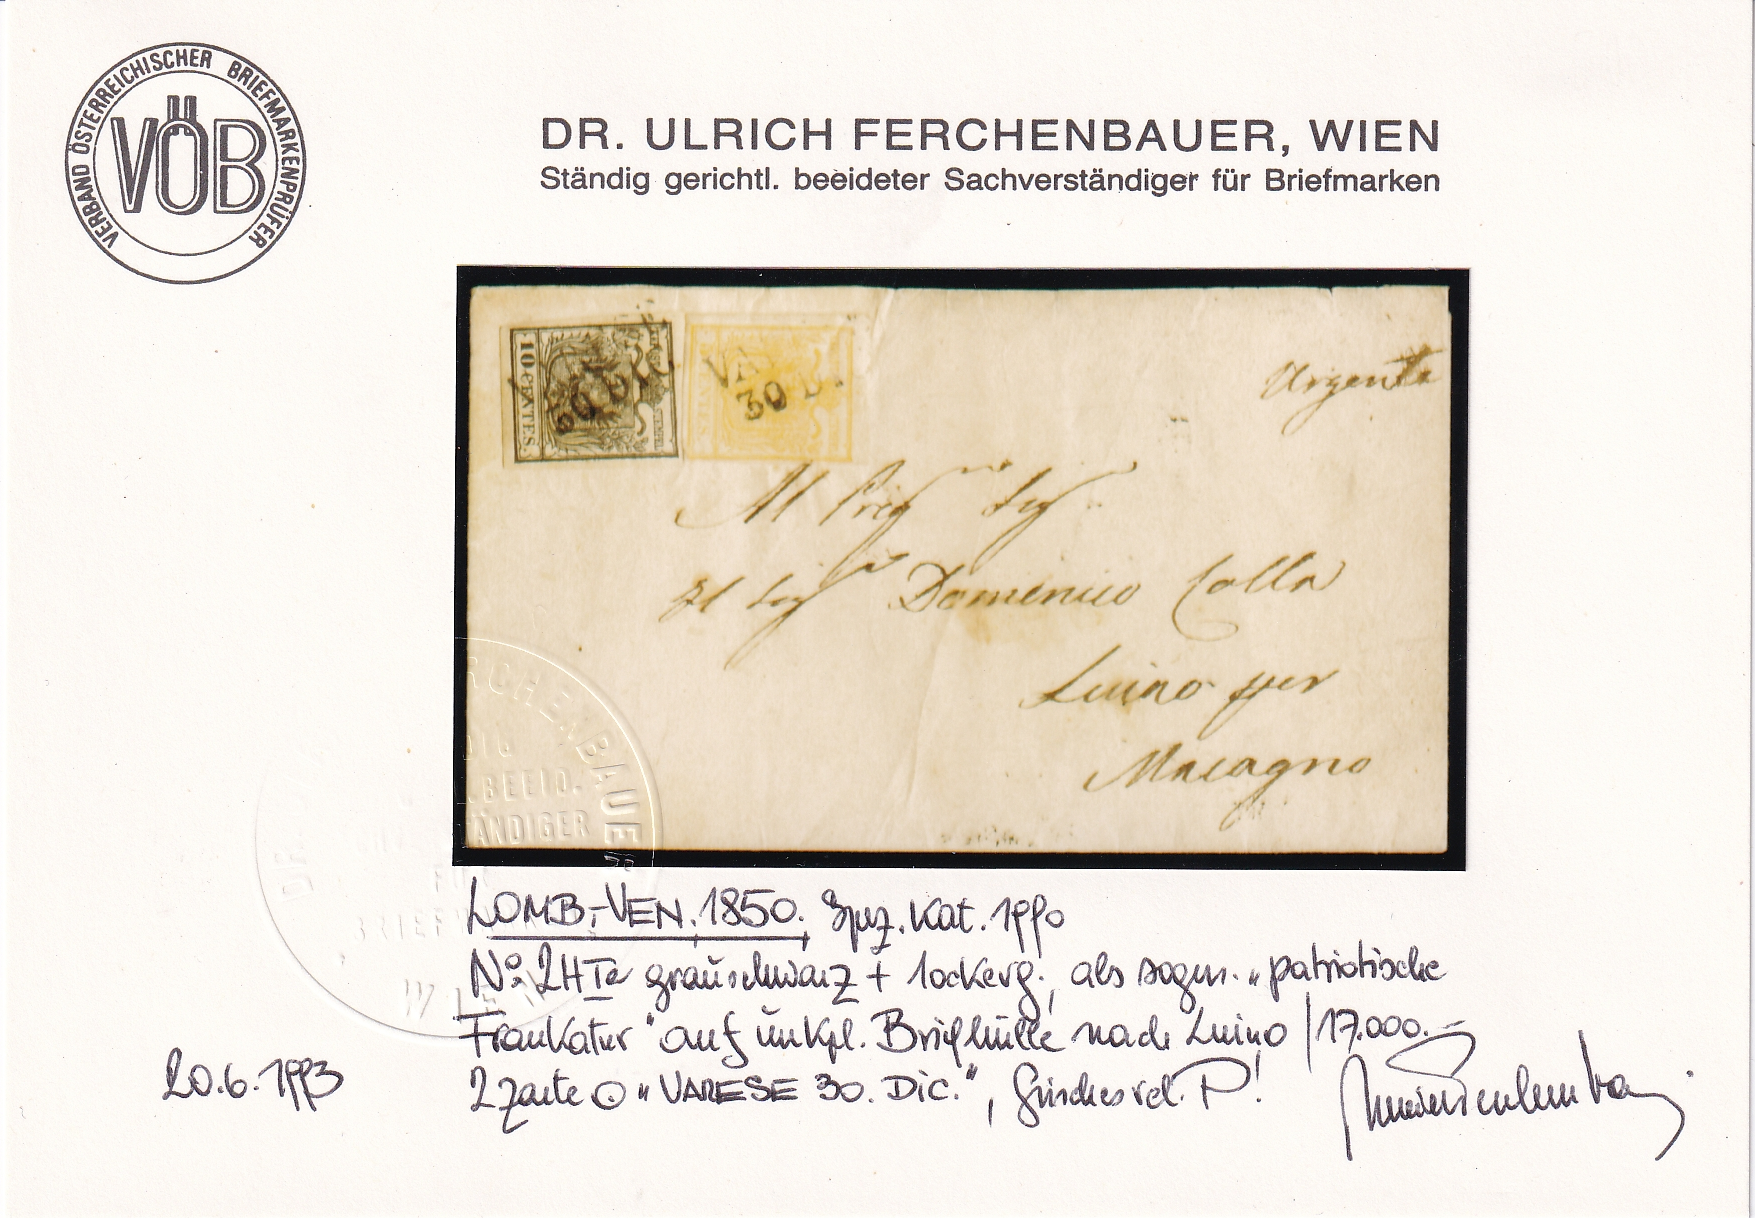 VERBAND ÖSTERREICHISCHER BRIEFMARKENPRÜFER
VÖB
DR. ULRICH FERCHENBAUER, WIEN
Ständig gerichtl. beeideter Sachverständiger für Briefmarken
10 CENTES.
30 DIC
VA
30 D.
Urgente
Al
Il Sig Domenico Colla
Luino per
Macagno
RCHENBAUER
BEEID.
ÄNDIGER
FÜR
BRIEFM
WIEN
LOMB.-VEN. 1850. Spez. Kat. 1990
No 2HIa grauschwarz + 1ockerg., als sogen. "patriotische
Frankatur" auf unkpl. Briefhülle nach Luino / 17.000.-
20.6.1993
2 zarte ⊙ "VARESE 30. DIC.", frisches P!